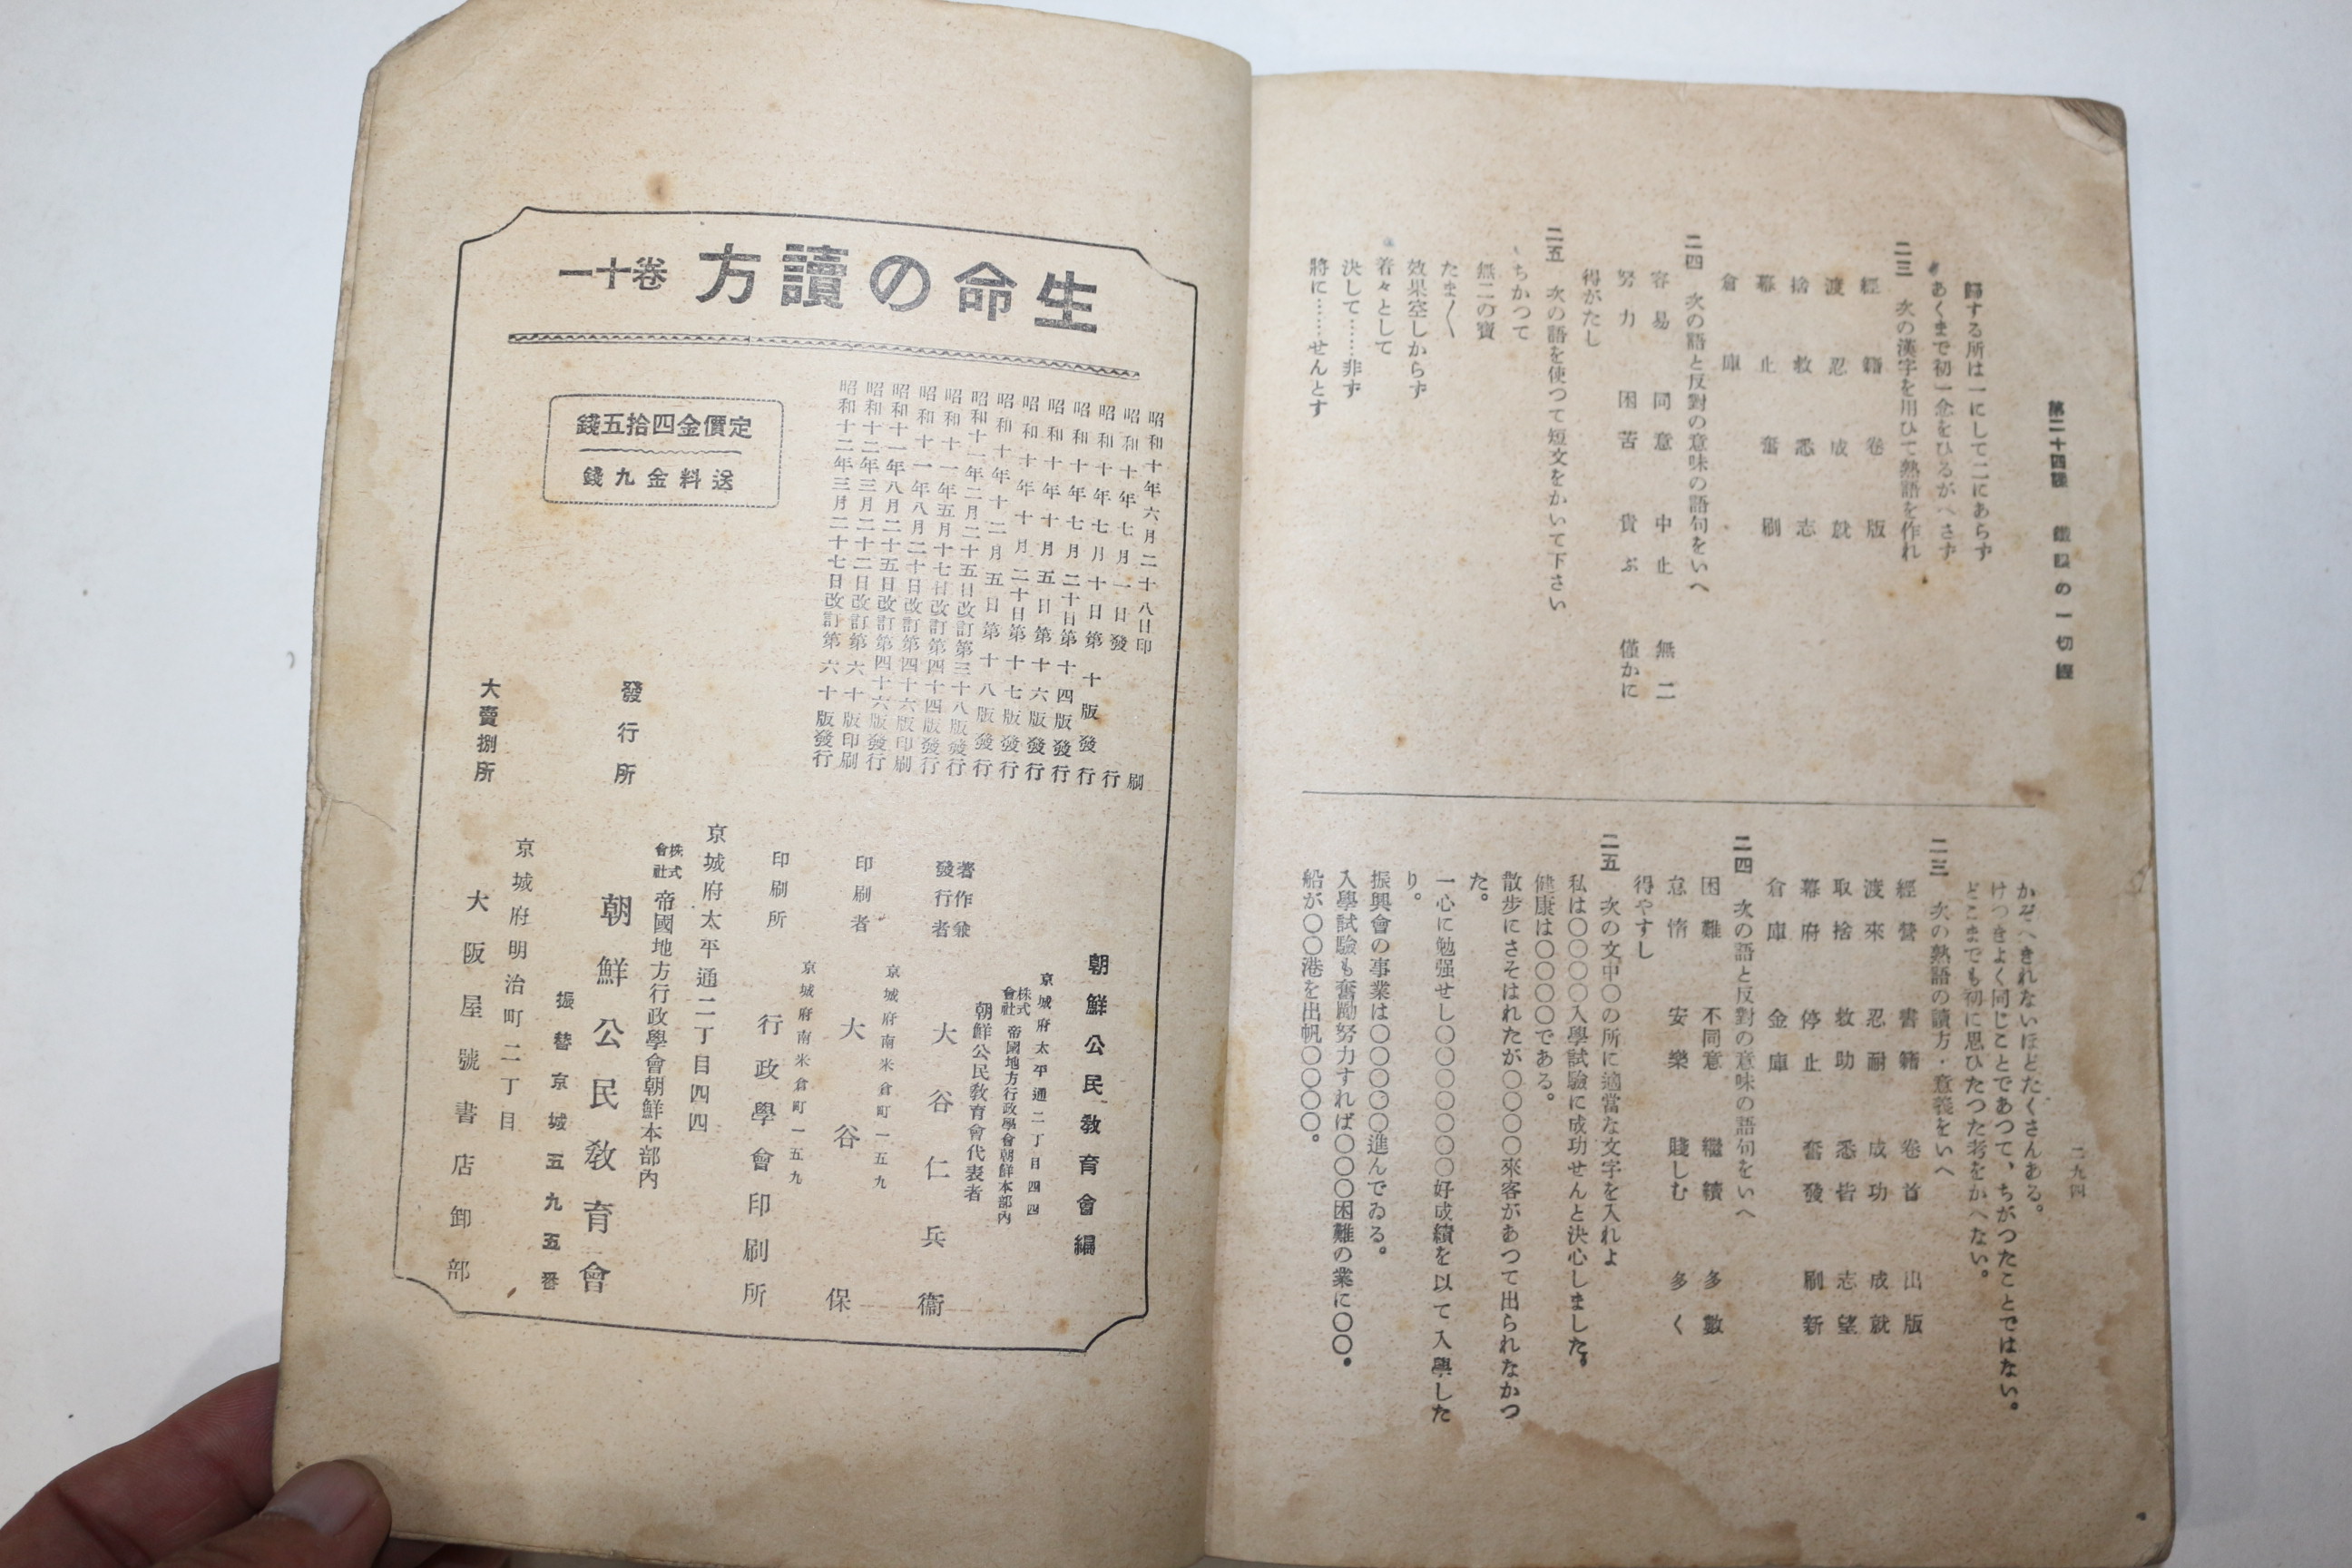 第二十四課　鐵眼の一切經
歸する所は一にして二にあらず
あくまで初一念をひるがへさず
二三　次の漢字を用ひて熟語を作れ
經　籍　卷　版
渡　忍　成　就
捨　救　悉　志
幕　止　奮　刷
倉　庫
二四　次の語と反對の意味の語句をいへ
容易　同意　中止　無二
努力　困苦　貴ぶ　僅かに
得がたし
二五　次の語を使つて短文をかいて下さい
ちかつて
無二の寶
たま〱
效果空しからず
着々として
決して……非ず
將に……せんとす
二九四
かぞへきれないほどたくさんある。
けつきよく同じことであつて、ちがつたことではない。
どこまでも初に思ひたつた考をかへない。
二三　次の熟語の讀方・意義をいへ
經營　書籍　卷首　出版
渡來　忍耐　成功　成就
取捨　救助　悉皆　志望
幕府　停止　奮發　刷新
倉庫　金庫
二四　次の語と反對の意味の語句をいへ
困難　不同意　繼續　多數
怠惰　安樂　賤しむ　多く
得やすし
二五　次の文中〇の所に適當な文字を入れよ
私は〇〇〇〇入學試驗に成功せんと決心しました。
健康は〇〇〇〇である。
散步にさそはれたが〇〇〇〇來客があつて出られなかつ
た。
一心に勉强せし〇〇〇〇〇〇〇好成績を以て入學した
り。
振興會の事業は〇〇〇〇〇進んでゐる。
入學試驗も奮勵努力すれば〇〇〇困難の業に〇〇。
船が〇〇港を出帆〇〇〇〇。
生命の讀方　卷十一
定價金四拾五錢
送料金九錢
昭和十年六月二十八日印刷
昭和十年七月一日發行
昭和十年七月十日第十版發行
昭和十年七月二十日第十四版發行
昭和十年十月五日第十六版發行
昭和十年十月二十日第十七版發行
昭和十年十二月五日第十八版發行
昭和十一年二月二十五日改訂第三十八版發行
昭和十一年五月十七日改訂第四十四版發行
昭和十一年八月二十日改訂第四十六版印刷
昭和十一年八月二十五日改訂第四十六版發行
昭和十二年三月二十二日改訂第六十版印刷
昭和十二年三月二十七日改訂第六十版發行
朝鮮公民敎育會編
京城府太平通二丁目四四
株式會社帝國地方行政學會朝鮮本部內
朝鮮公民敎育會代表者
著作兼發行者　大谷仁兵衞
京城府南米倉町一五九
印刷者　大谷保
京城府南米倉町一五九
印刷所　行政學會印刷所
京城府太平通二丁目四四
株式會社帝國地方行政學會朝鮮本部內
發行所　朝鮮公民敎育會
振替京城五九五番
京城府明治町二丁目
大賣捌所　大阪屋號書店卸部